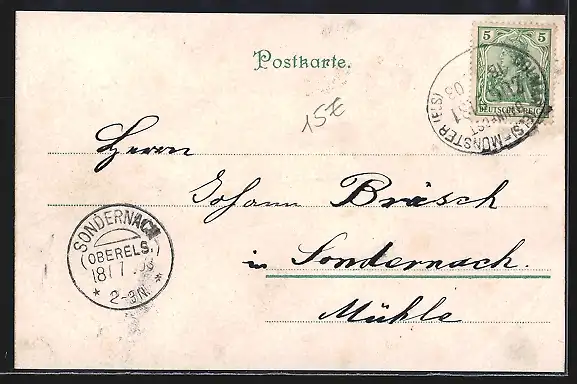 Postkarte.
5 5
DEUTSCHES REICH
MÜNSTER (ELS)
15E
Herrn
Johann Bräsch
in Sondernach.
Mühle
SONDERNACH
(OBERELS.)
18 7 03
* 2-3N. *